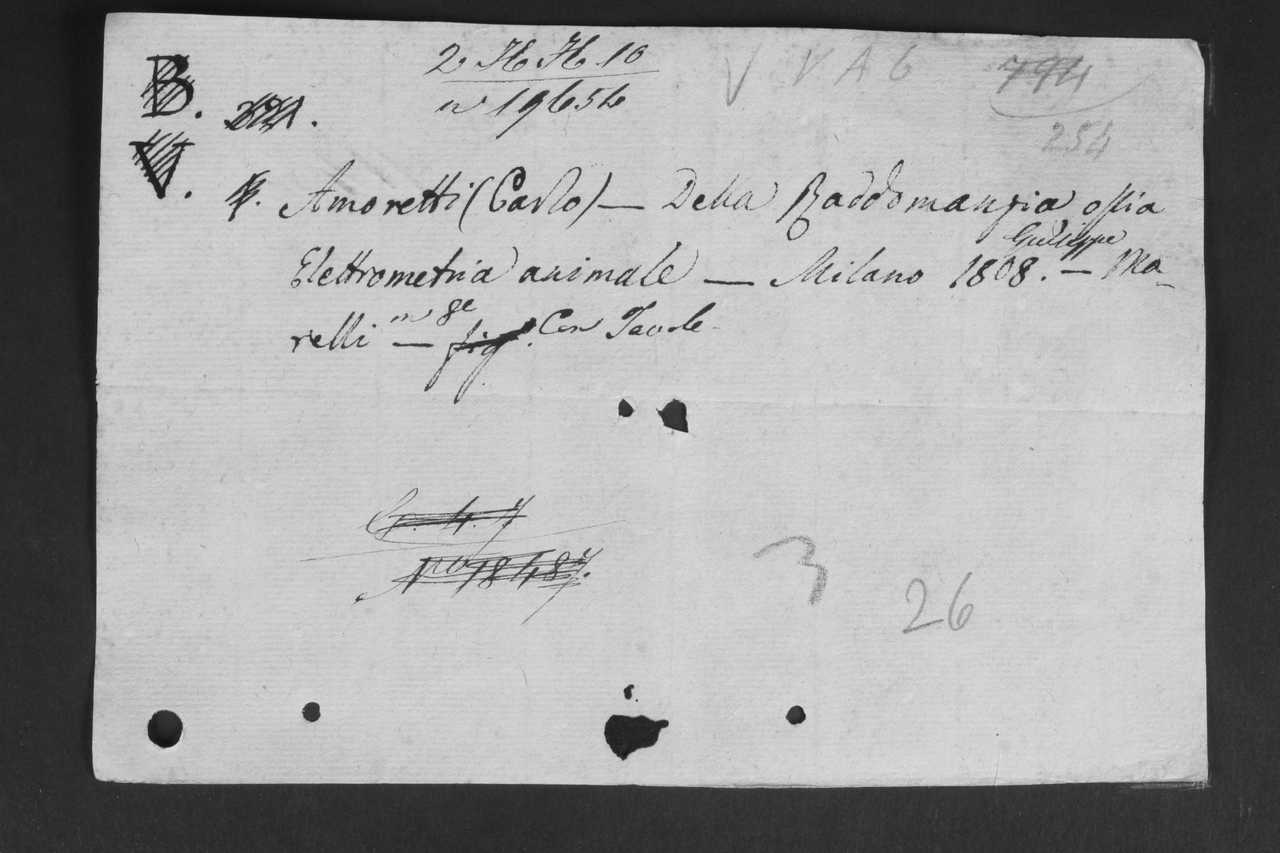 B.
V.
2. H. H. 10
nº 19654
V V A 6
794
254
Amoretti (Carlo) — Della Raddomanzia ossia
Elettrometria animale — Milano 1808. — Giuseppe Ma-
relli — in 8º fig. Con Tavole
G. 4. 7
Nº 18487.
3
26